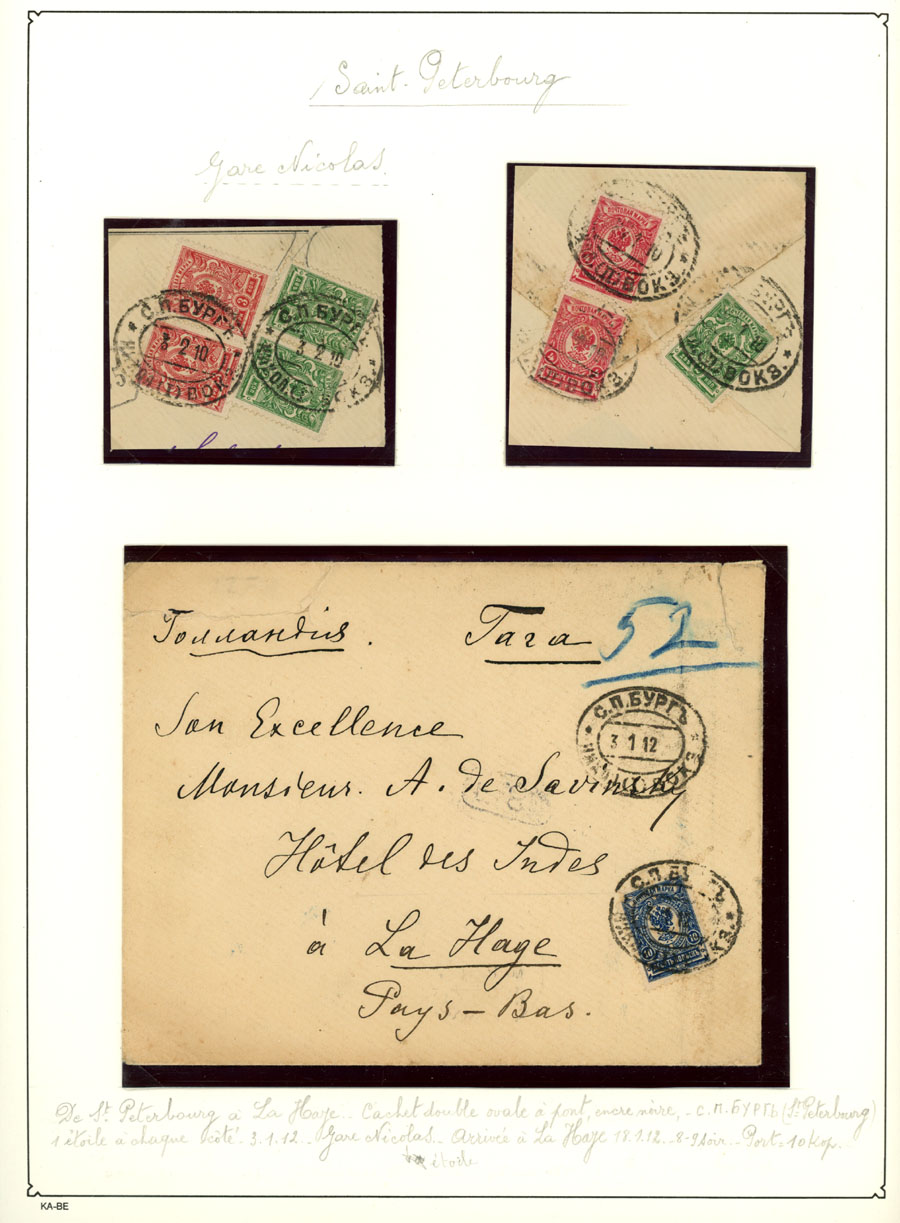 Saint-Peterbourg
Gare Nicolas
С.П.БУРГЪ
3 2 10
ВОКЗ.
С.П.БУРГЪ
3 2 10
ВОКЗ.
ВОКЗ.
БУРГЪ
ВОКЗ.
Голландія. Гага 52
С.П.БУРГЪ
3 1 12
ВОКЗ
Son Excellence
Monsieur. A. de
Hôtel des Indes
à La Haye
Pays-Bas.
С.П.БУРГЪ
De St Peterbourg à La Haye. Cachet double ovale à pont, encre noire, - С.П.БУРГЪ (St Peterbourg)
1 étoile à chaque côté. 3.1.12. Gare Nicolas. Arrivée à La Haye 18.1.12. 8-9 soir. Port = 10 kop.
étoile
KA-BE